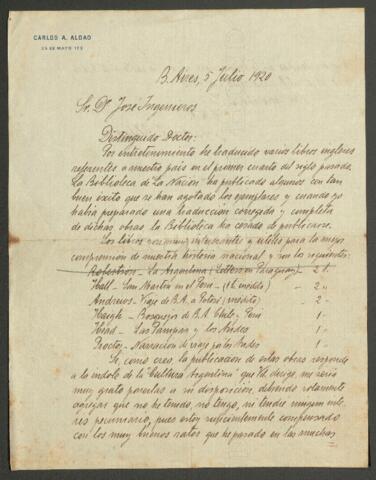 CARLOS A. ALDAO
25 DE MAYO 179
B. Aires, 5 Julio 1920
Sr. Dr. José Ingenieros
Distinguido Doctor:
Por entretenimiento he traducido varios libros ingleses
referentes a nuestro país en el primer cuarto del siglo pasado.
La Biblioteca de La Nación ha publicado algunos con tan
buen éxito que se han agotado los ejemplares y cuando yo
había preparado una traducción corregida y completa
de dichas obras la Biblioteca ha cesado de publicarse.
Los libros son muy interesantes y útiles para la mejor
comprensión de nuestra historia nacional y son los siguientes:
Robertson - La Argentina (Letters on Paraguay) - 2 t.
Hall - San Martín en el Perú - (inédito) - 2 "
Andrews - Viaje de B.A. a Potosí (inédito) - 2 "
Haigh - Bosquejos de B.A. Chile y Perú 1 "
Head - Las Pampas y los Andes 1 "
Proctor - Narración de viaje por los Andes 1 "
Si, como creo, la publicación de estas obras responde
a la índole de la Cultura Argentina que Vd. dirige, me sería
muy grato ponerlas a su disposición, debiendo solamente
agregar que no he tenido, no tengo, ni tendré ningún inte-
rés pecuniario, pues estoy suficientemente compensado
con los muy buenos ratos que he pasado en las muchas